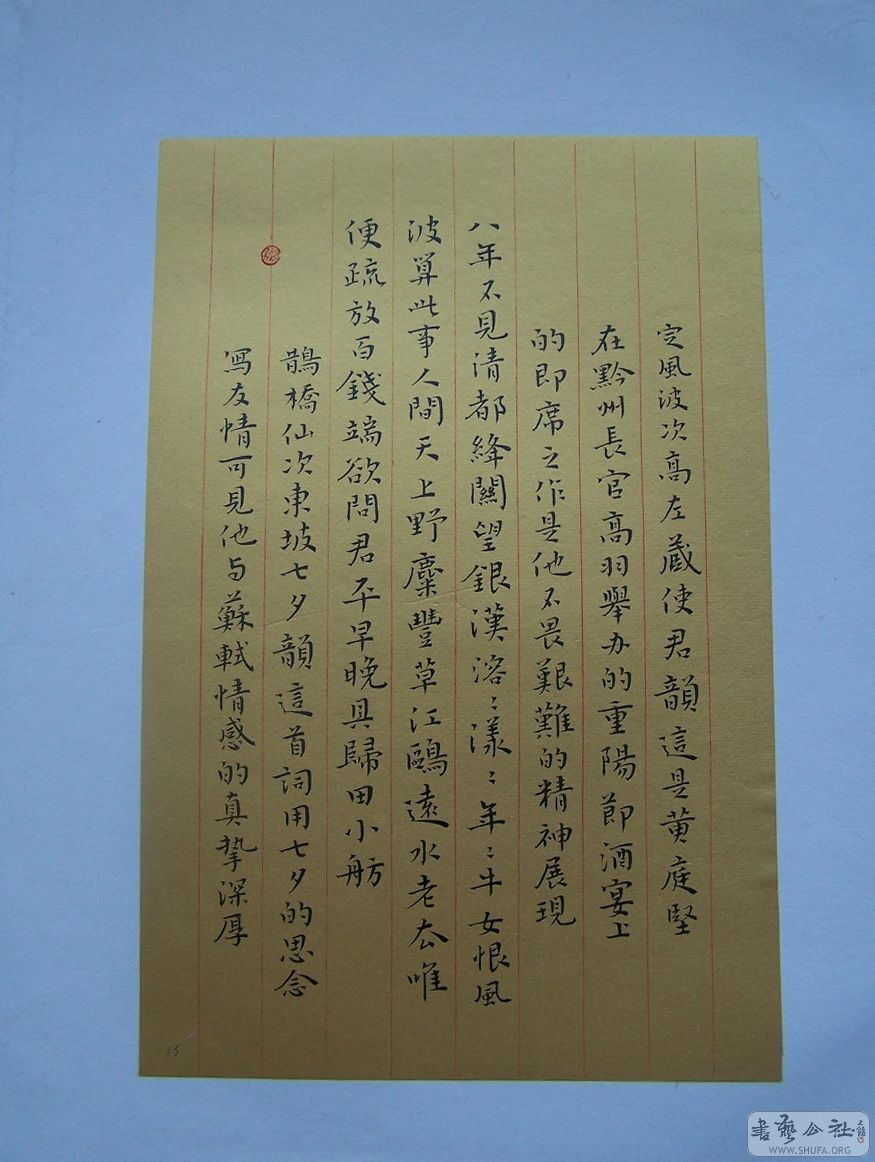 定風波次高左藏使君韻這是黄庭堅
在黔州長官高羽舉办的重陽節酒宴上
的即席之作是他不畏艱難的精神展現
八年不見清都絳闕望銀漢溶〻漾〻年〻牛女恨風
波算此事人間天上野麋豐草江鷗遠水老去唯
便疏放百錢端欲問君平早晚具歸田小舫
鵲橋仙次東坡七夕韻這首詞用七夕的思念
寫友情可見他与蘇軾情感的真挚深厚
15
書藝公社
WWW.SHUFA.ORG